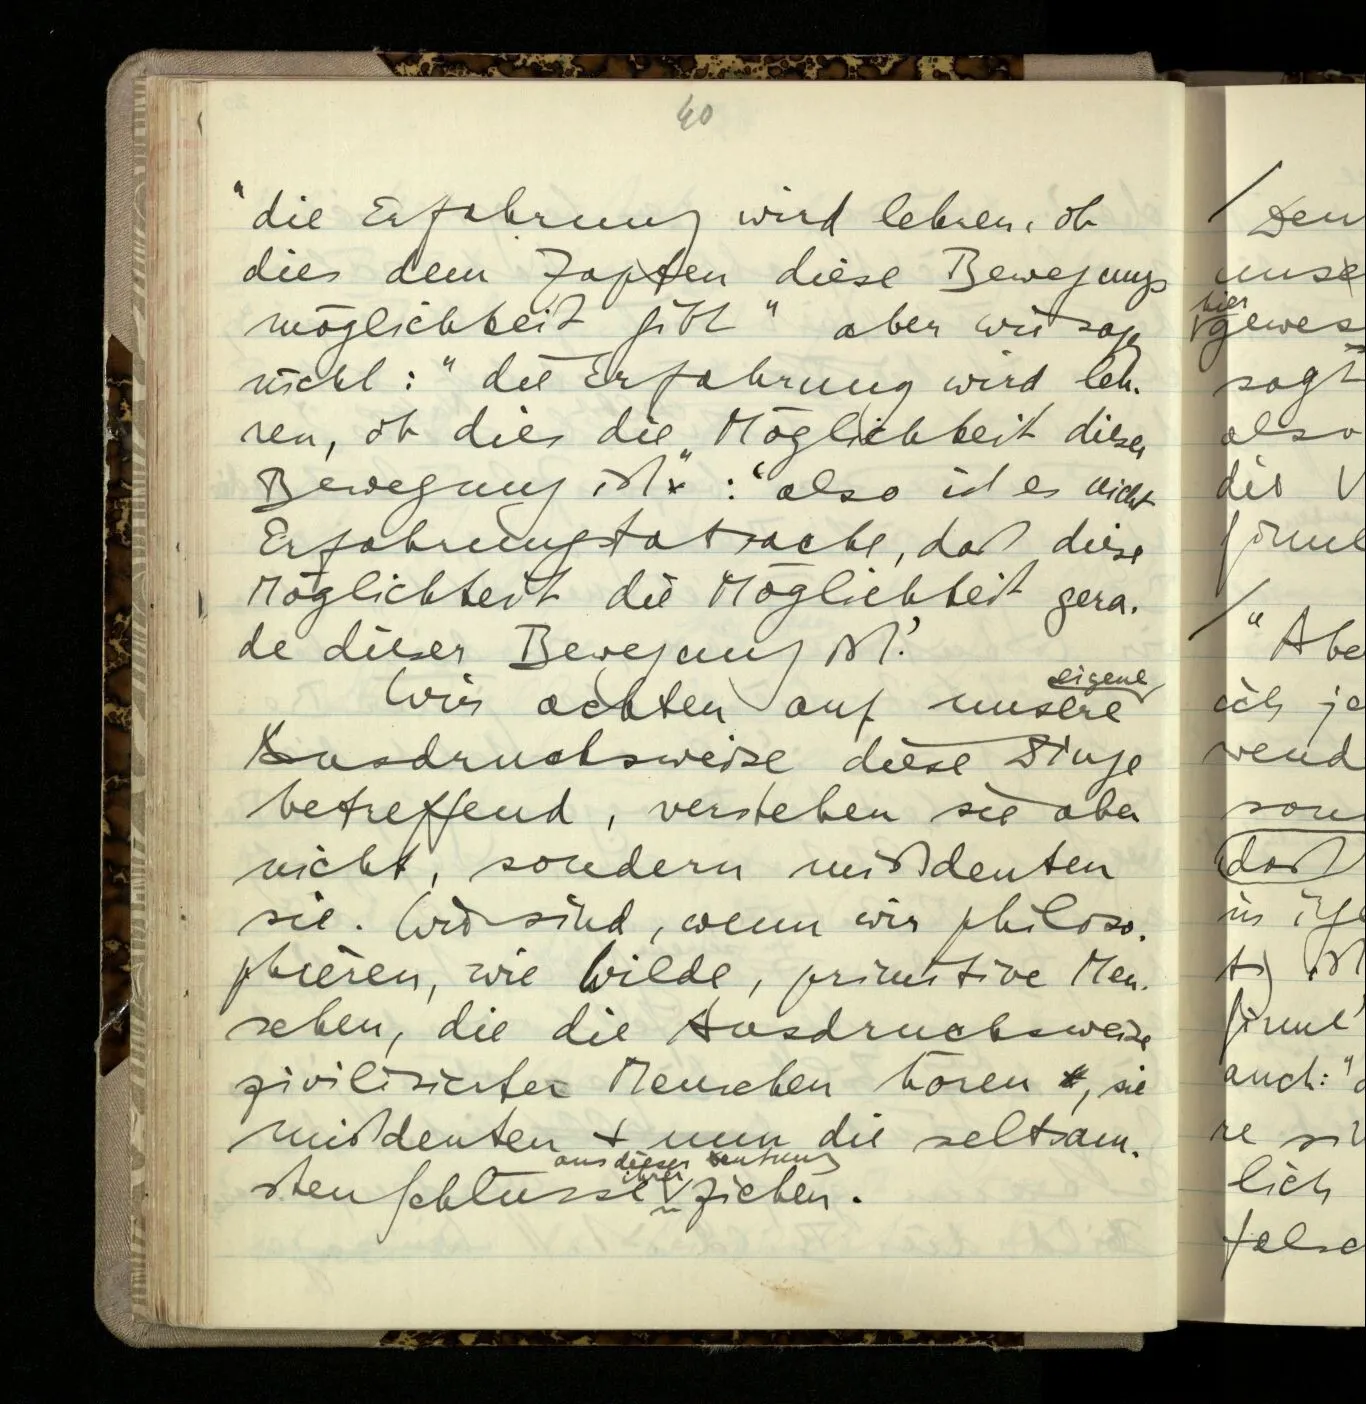 40
"die Erfahrung wird lehren, ob
dies dem Zapfen diese Bewegungs
möglichkeit gibt" aber wir sagen
nicht: "die Erfahrung wird leh-
ren, ob dies die Möglichkeit dieser
Bewegung ist": "also ist es nicht
Erfahrungstatsache, daß diese
Möglichkeit die Möglichkeit gera-
de dieser Bewegung ist".
eigene
Wir achten auf unsere
Ausdrucksweise diese Dinge
betreffend, verstehen sie aber
nicht, sondern mißdeuten
sie. Wir sind, wenn wir philoso-
phieren, wie Wilde, primitive Men-
schen, die die Ausdrucksweise
zivilisierter Menschen hören, sie
mißdeuten + nun die seltsam-
aus dieser Deutung
ihrer
sten Schlüsse ziehen.
/ Den
unse
hier
gewes
sagt
also
die V
förml
/ "Abe
ich je
wend
son
daß
in ige
ist
förml
auch: "d
re si
lich
falsc